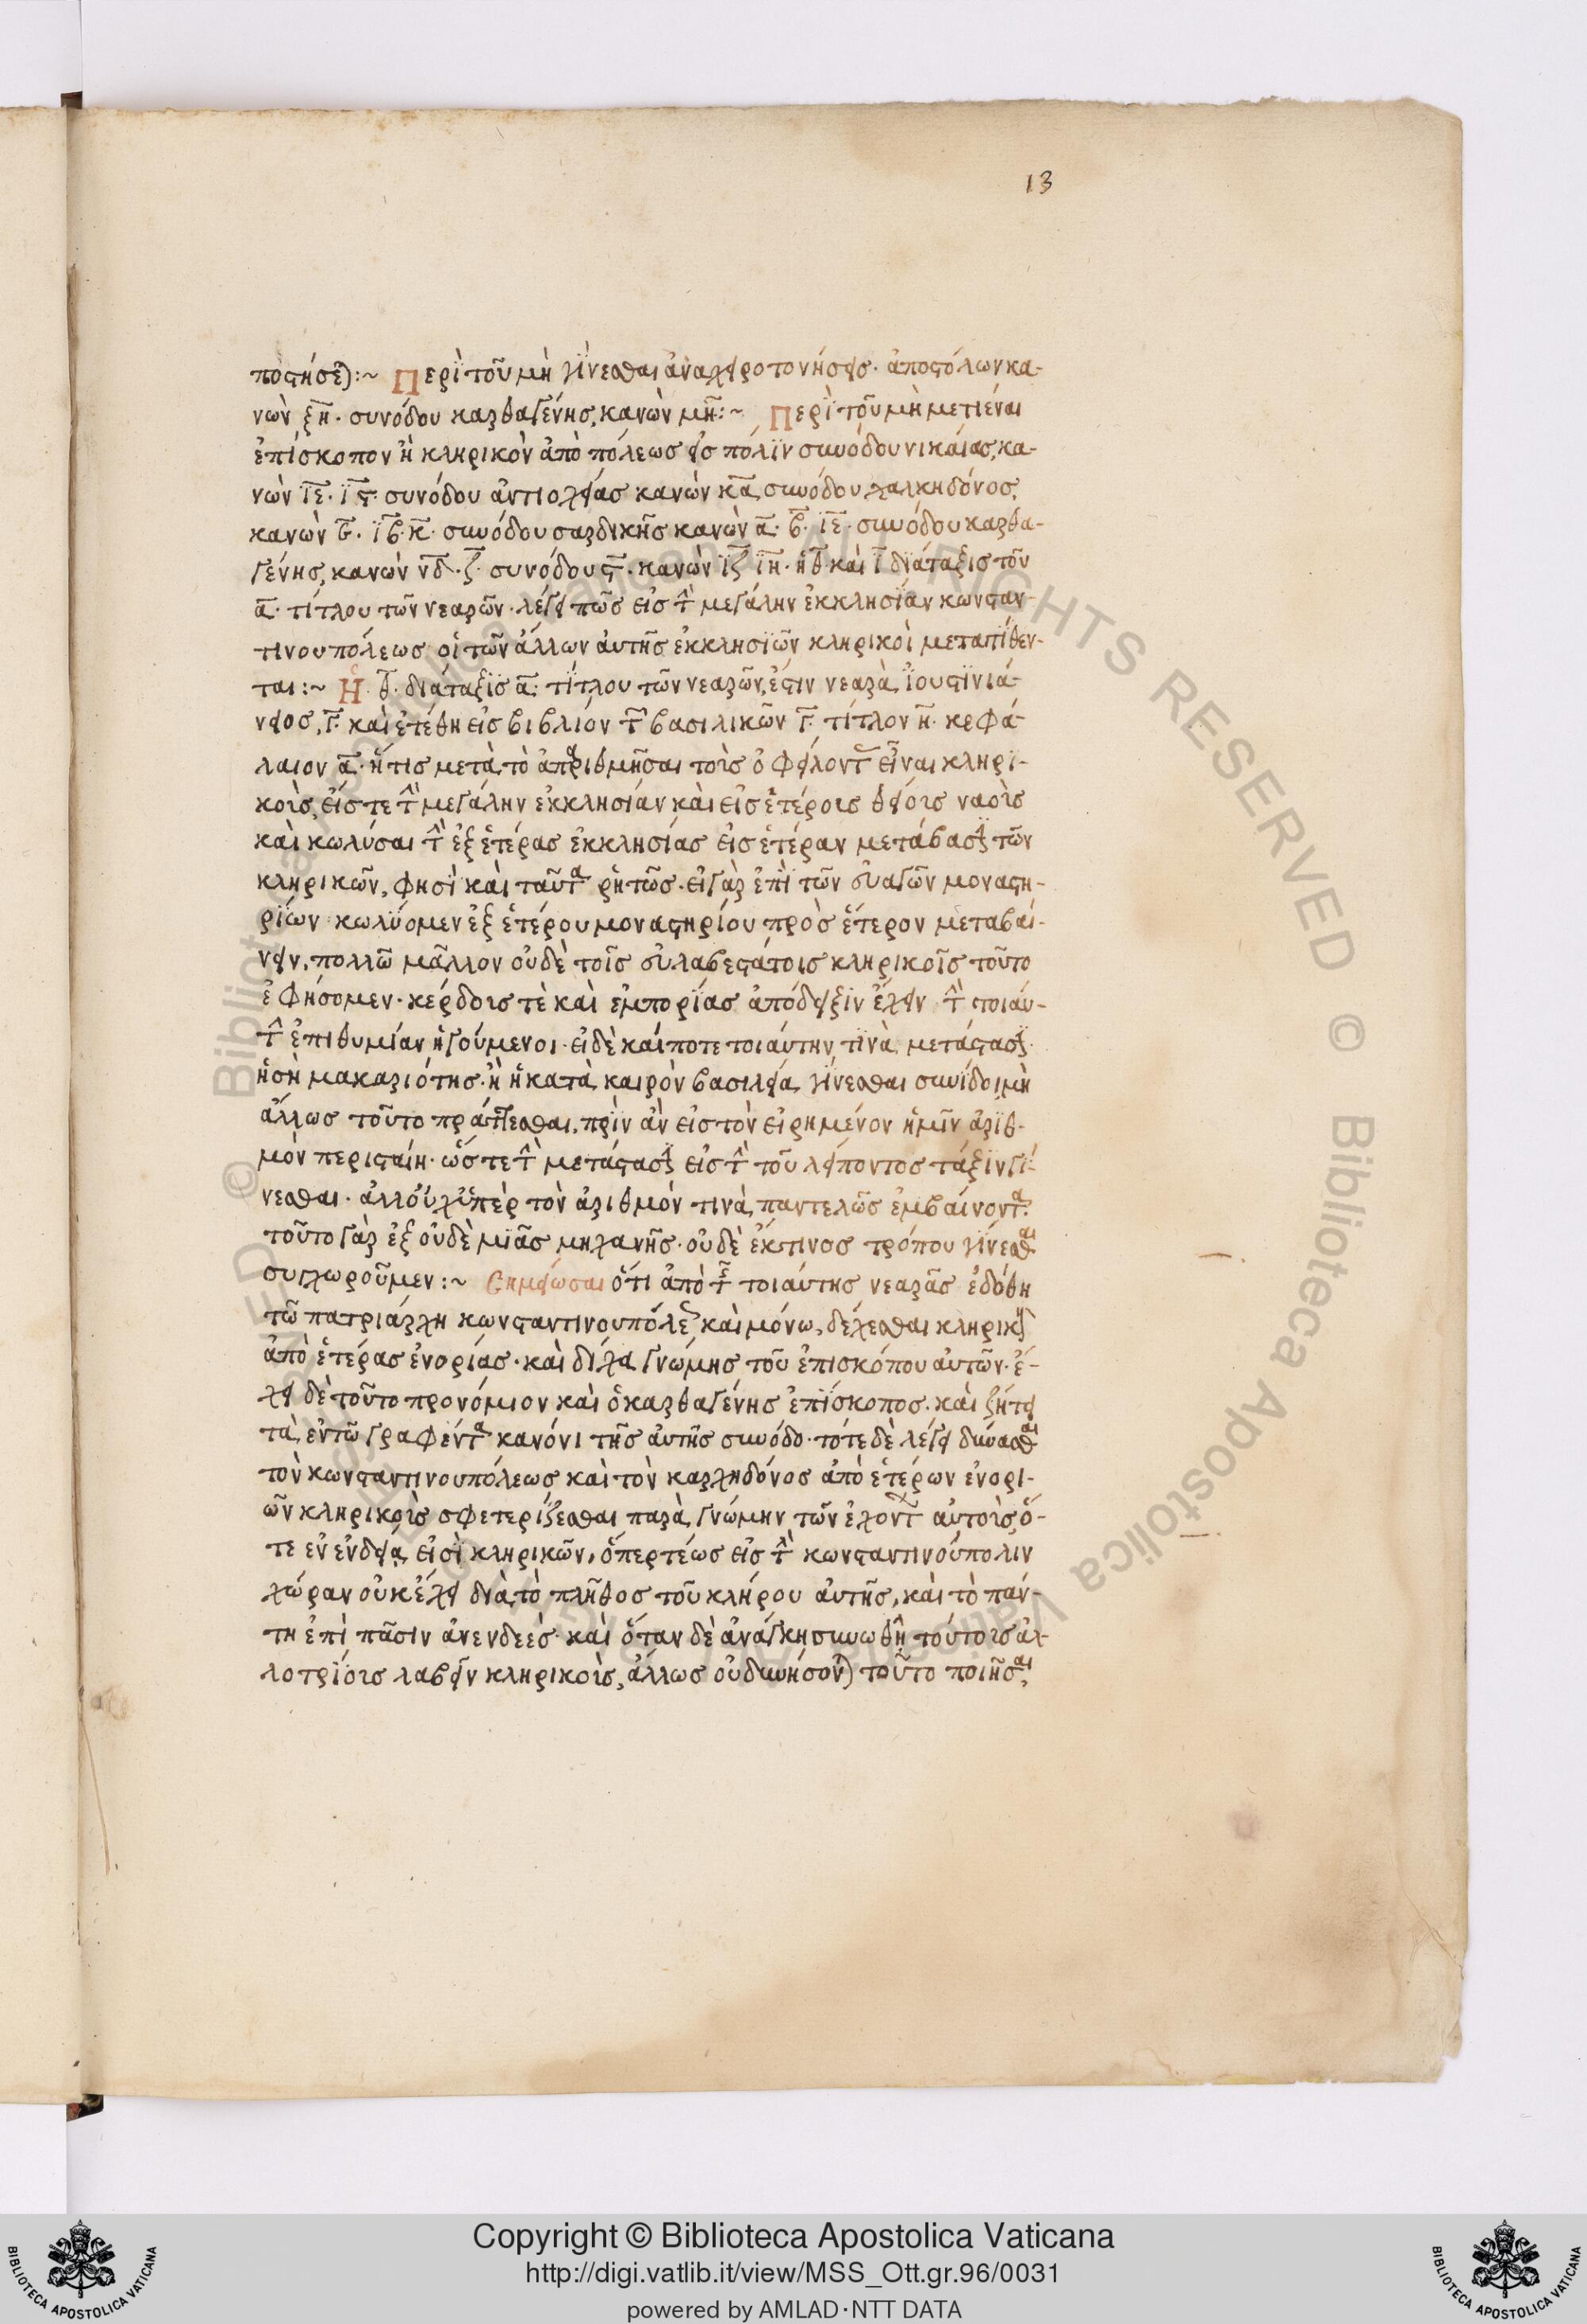 13
ποστήσεται:~ Περὶ τοῦ μὴ γίνεσθαι ἀναχειροτονήσεις· ἀποστόλων κα-
νὼν ξη· συνόδου καρθαγένης, κανὼν μη:~ Περὶ τοῦ μὴ μετιέναι
ἐπίσκοπον ἢ κληρικὸν ἀπὸ πόλεως εἰς πόλιν συνόδου νικαίας, κα-
νὼν ιε· ις· συνόδου ἀντιοχείας κανὼν κα, συνόδου χαλκηδόνος,
κανὼν ε· ιβ· κ· συνόδου σαρδικῆς κανὼν α· β· ιε· συνόδου καρθα-
γένης, κανὼν νδ· ζ· συνόδου ς· κανὼν ιζ ιη· ἡ θ· καὶ ι διάταξις τοῦ
α· τίτλου τῶν νεαρῶν· λέγει πῶς εἰς τὴν μεγάλην ἐκκλησίαν κωνσταν-
τινουπόλεως οἱ τῶν ἄλλων αὐτῆς ἐκκλησιῶν κληρικοὶ μετατίθεν-
ται:~ Ἡ θ· διάταξις α· τίτλου τῶν νεαρῶν, ἐστιν νεαρὰ Ἰουστινιά-
νειος, γ· καὶ ἐτέθη εἰς βιβλίον τῶν βασιλικῶν γ· τίτλον η· κεφά-
λαιον α· ἥτις μετὰ τὸ ἀπαριθμῆσαι τοὺς ὀφείλοντας εἶναι κληρι-
κοὺς, εἴς τε τὴν μεγάλην ἐκκλησίαν καὶ εἰς ἑτέρους θείους ναοὺς
καὶ κωλύσαι τὴν ἐξ ἑτέρας ἐκκλησίας εἰς ἑτέραν μετάβασιν τῶν
κληρικῶν, φησὶ καὶ ταῦτα ῥητῶς· εἰ γὰρ ἐπὶ τῶν εὐαγῶν μοναστη-
ρίων κωλύομεν ἐξ ἑτέρου μοναστηρίου πρὸς ἕτερον μεταβαί-
νειν, πολλῶ μᾶλλον οὐδὲ τοῖς εὐλαβεστάτοις κληρικοῖς τοῦτο
ἐφήσομεν· κέρδους τὲ καὶ ἐμπορίας ἀπόδειξιν ἔχειν τὴν τοιαύ-
την ἐπιθυμίαν ἡγούμενοι· εἰ δὲ καί ποτε τοιαύτην τινὰ μετάστασιν·
ἡ σὴ μακαριότης· ἢ ἡ κατὰ καιρὸν βασιλεία γίνεσθαι συνίδοι, μὴ
ἄλλως τοῦτο πράττεσθαι, πρὶν ἂν εἰς τὸν εἰρημένον ἡμῖν ἀριθ-
μὸν περισταίη· ὥστε τὴν μετάστασιν εἰς τὴν τοῦ λείποντος τάξιν γί-
νεσθαι· ἀλλ' οὐχ ὑπὲρ τὸν ἀριθμόν τινὰ, παντελῶς ἐμβαίνοντα·
τοῦτο γὰρ ἐξ οὐδὲ μιᾶς μηχανῆς· οὐδὲ ἔκ τινος τρόπου γίνεσθαι
συγχωροῦμεν:~ Σημείωσαι ὅτι ἀπὸ τῆς τοιαύτης νεαρᾶς ἐδόθη
τῶ πατριάρχη κωνσταντινουπόλεως καὶ μόνω, δέχεσθαι κληρικοὺς
ἀπὸ ἑτέρας ἐνορίας· καὶ δίχα γνώμης τοῦ ἐπισκόπου αὐτῶν· ἔ-
χει δὲ τοῦτο προνόμιον καὶ ὁ καρθαγένης ἐπίσκοπος· καὶ ζήτει
τὰ ἐν τῶ γραφέντα κανόνι τῆς αὐτῆς συνόδου· τότε δὲ λέγει δύνασθαι
τὸν κωνσταντινουπόλεως καὶ τὸν καρχηδόνος ἀπὸ ἑτέρων ἐνορι-
ῶν κληρικοὺς σφετερίζεσθαι παρὰ γνώμην τῶν ἐχόντων αὐτοὺς, ὅ-
τε ἐν ἐνδεία εἰσὶ κληρικῶν, ὅπερ τέως εἰς τὴν κωνσταντινούπολιν
χώραν οὐκ ἔχει διὰ τὸ πλῆθος τοῦ κλήρου αὐτῆς, καὶ τὸ πάν-
τη ἐπὶ πᾶσιν ἀνενδεές· καὶ ὅταν δὲ ἀνάγκη συνωθῆ τούτους ἀλ-
λοτρίους λαβεῖν κληρικοὺς, ἄλλως οὐ δυνήσονται τοῦτο ποιῆσαι,
Copyright © Biblioteca Apostolica Vaticana
http://digi.vatlib.it/view/MSS_Ott.gr.96/0031
powered by AMLAD·NTT DATA